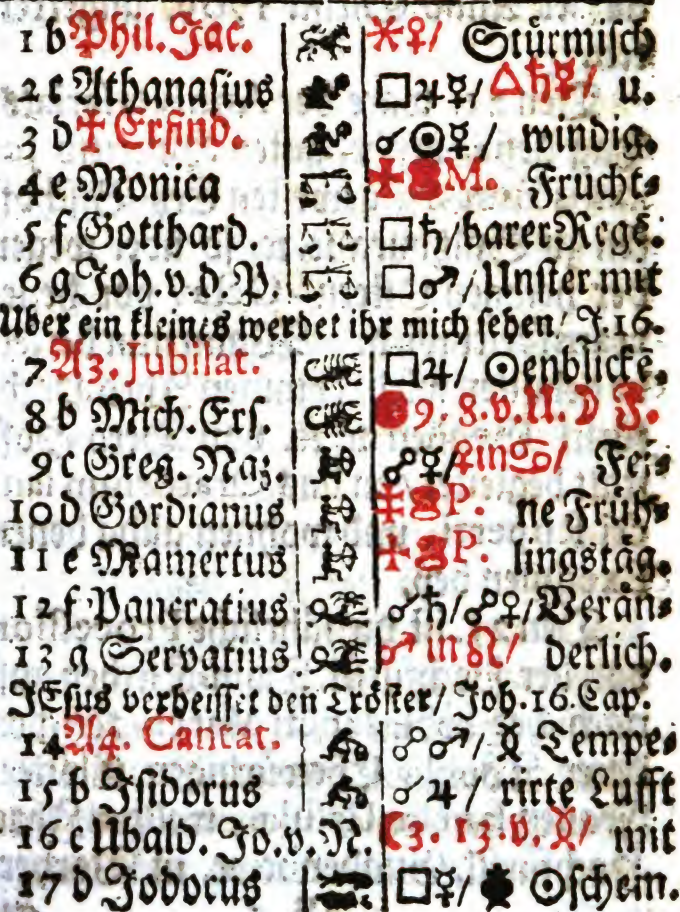 1 b Phil. Jac. ⚹♀/ Stürmisch
2 c Athanasius □♃☿/ △♄☿/ u.
3 d ✝ Erfind. ☌☉☿/ windig.
4 e Monica ✠ M. Frucht⸗
5 f Gotthard. □♄/ barer Regē.
6 g Joh. v. d. P. □♂/ Unster mit
Uber ein kleines werdet ihr mich sehen/ J. 16.
7 A 3. Jubilat. □♃/ ☉enblicke,
8 b Mich. Ers. ● 9. 8. v. U. ☽ F.
9 c Greg. Naz. ☍☿/ ♀ in ♋/ Fei⸗
10 d Gordianus ✠ P. ne Früh⸗
11 e Mamertus ✠ P. lingstäg.
12 f Pancratius ☌♄/ ☍♀/ Verän⸗
13 g Servatius ♂ in ♌/ derlich.
JEsus verheisset den Tröster/ Joh. 16. Cap.
14 A 4. Cantat. ☍♂/ Tempe⸗
15 b Isidorus ☌♃/ rirte Lufft
16 c Ubald. Jo. v. N. ☾ 3. 13. v. / mit
17 d Jodocus □☿/ ☉schein.